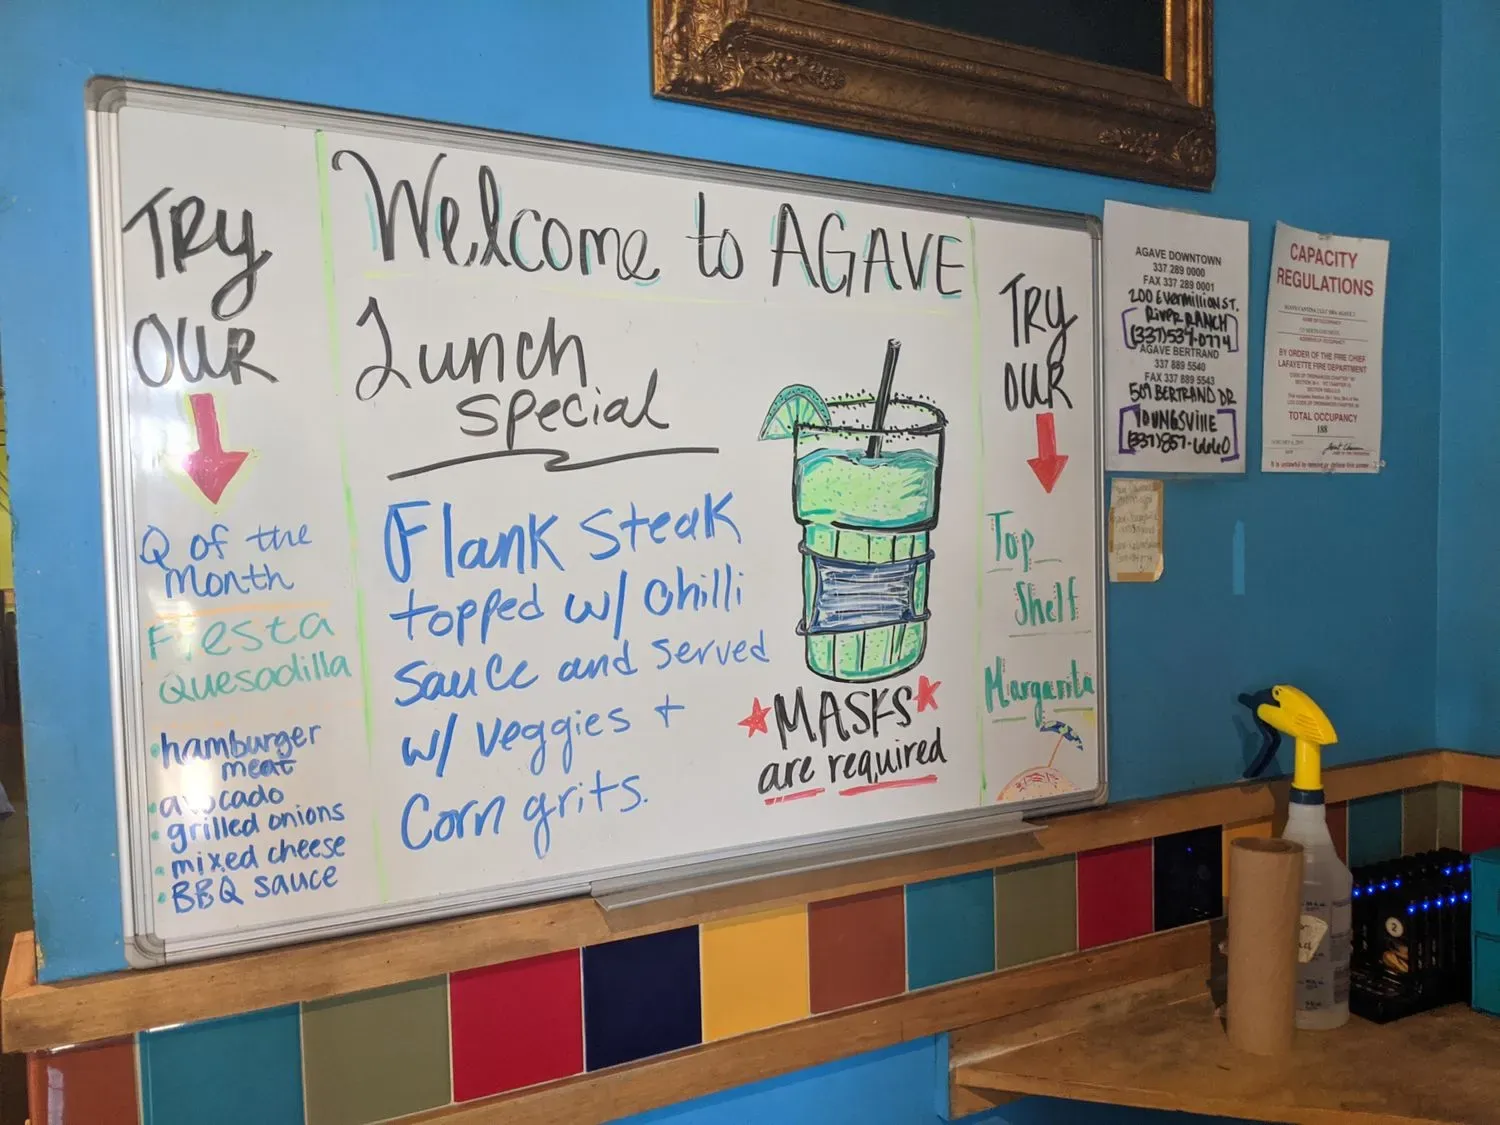 TRY
OUR
Q of the
month
Fiesta
Quesadilla
hamburger
meat
avocado
grilled onions
mixed cheese
BBQ sauce
Welcome to AGAVE
Lunch
special
Flank steak
topped w/ chilli
sauce and served
w/ veggies +
Corn grits.
MASKS
are required
TRY
OUR
Top
Shelf
Margarita
AGAVE DOWNTOWN
337 289 0000
FAX 337 289 0001
200 E Vermillion ST.
RIVER RANCH
(337)534-0774
AGAVE BERTRAND
337 889 5540
FAX 337 889 5543
509 BERTRAND DR
YOUNGSVIllE
(337)857-6660
CAPACITY
REGULATIONS
BY ORDER OF THE FIRE CHIEF
LAFAYETTE FIRE DEPARTMENT
TOTAL OCCUPANCY
188
It is unlawful to remove or deface this poster
2